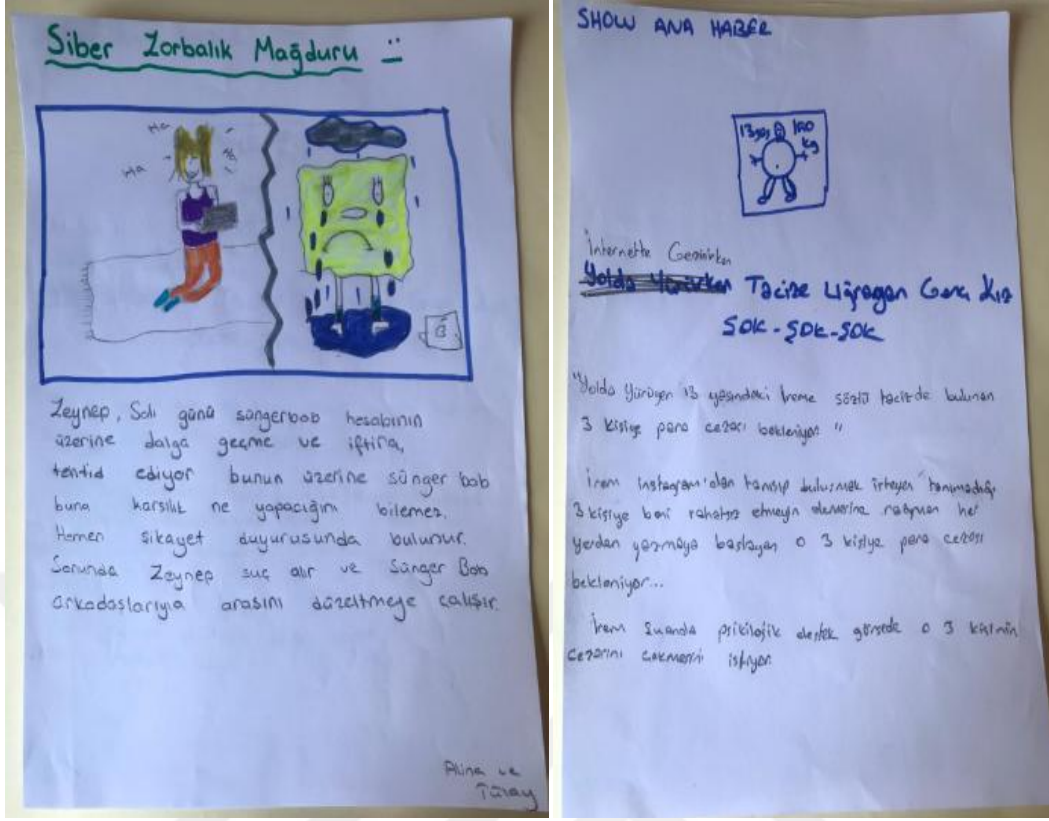 Siber Zorbalık Mağduru
Ha
Ha
Zeynep, Salı günü süngerbob hesabının
üzerine dalga geçme ve iftira,
tehtid ediyor bunun üzerine sünger bob
buna karsılık ne yapacığını bilemez.
Hemen şikayet duyurusunda bulunur.
Sonunda Zeynep suç alır ve Sünger Bob
arkadaşlarıyla arasını düzeltmeye çalışır.
Alina ve
SHOW ANA HABER
13 yaş
kg
İnternette Gezinirken
Yolda Yürürken Tacize Uğrayan Genç Kız
ŞOK-ŞOK-ŞOK
"Yolda Yürüyen 13 yaşındaki İreme sözlü tacizde bulunan
3 kişiye para cezası bekleniyor."
İrem instagram'dan tanışıp buluşmak isteyen tanımadığı
3 kişiye beni rahatsız etmeyin demesine rağmen her
yerden yazmaya başlayan o 3 kişiye para cezası
bekleniyor...
İrem Şuanda psikilojik destek görsede o 3 kişinin
cezasını çekmesini istiyor.